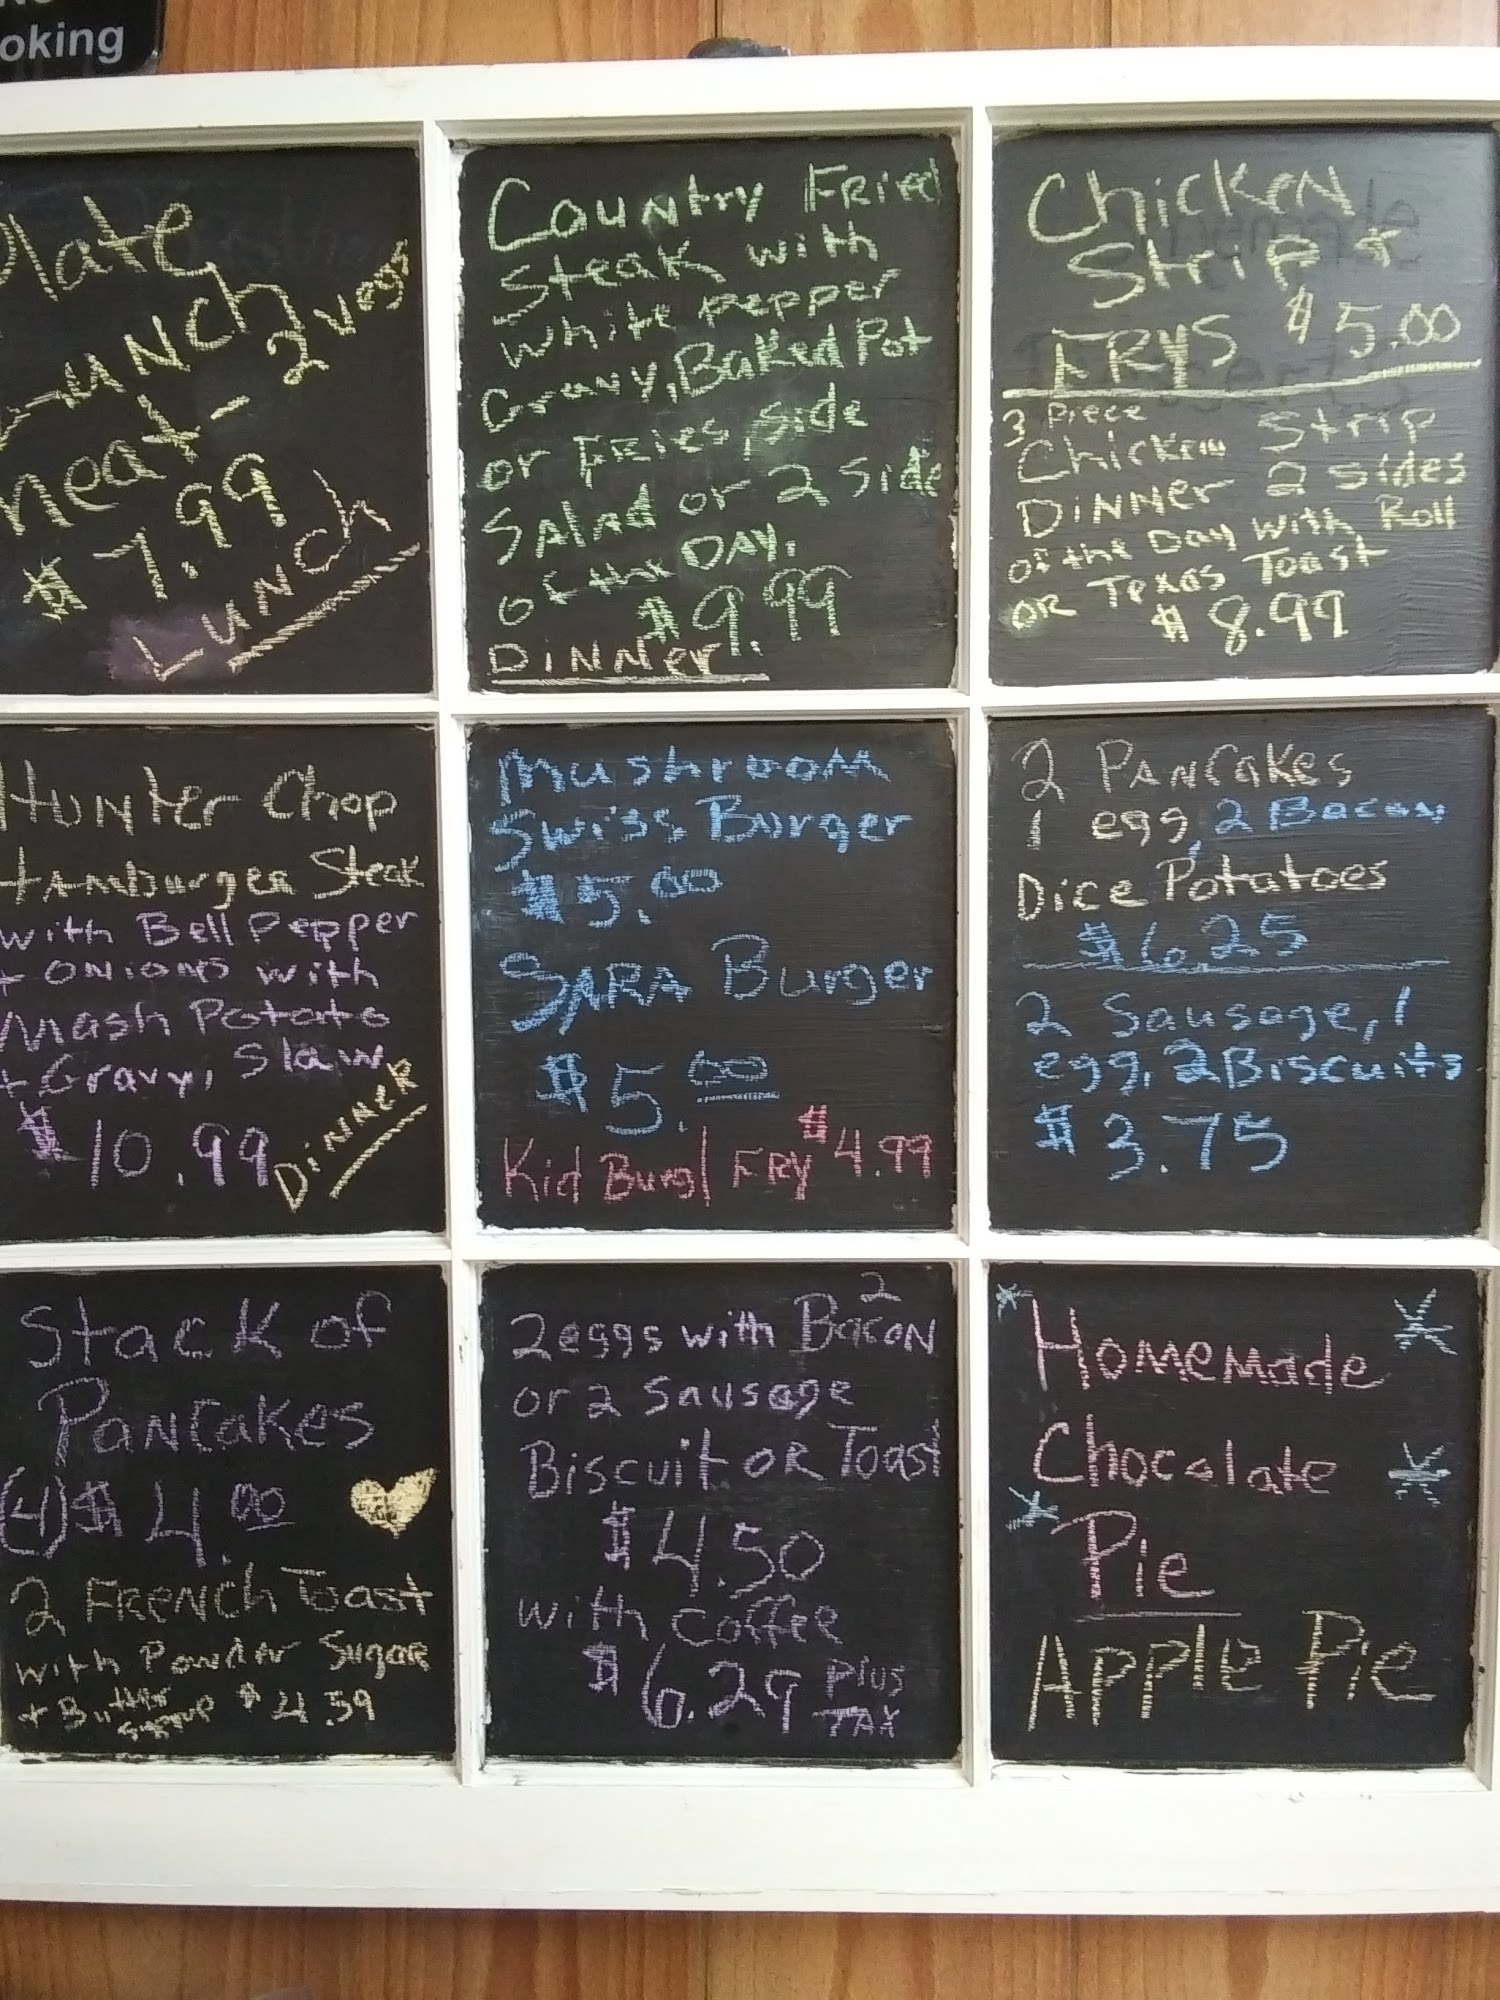 oking
Plate
Lunch
meat - 2 vegs
$7.99
Lunch
Country Fried
Steak with
white pepper
Gravy, Baked Pot
or Fries, Side
Salad or 2 side
of the DAY.
$9.99
Dinner
Chicken
Strip +
FRYS $5.00
3 Piece
Chicken Strip
Dinner 2 sides
of the Day with Roll
OR Texas Toast
$8.99
Hunter Chop
Hamburger Steak
with Bell Pepper
+ Onions with
Mash Potato
+ Gravy, Slaw
$10.99
Dinner
Mushroom
Swiss Burger
$5.00
SARA Burger
$5.00
Kid Burg/ FRY $4.99
2 Pancakes
1 egg, 2 Bacon
Dice Potatoes
$6.25
2 Sausage, 1
egg, 2 Biscuits
$3.75
Stack of
Pancakes
(4) $4.00
2 French Toast
with Powder Sugar
+ Butter
$4.59
2 eggs with 2 Bacon
or 2 Sausage
Biscuit OR Toast
$4.50
with Coffee
$6.29 plus
TAX
Homemade
Chocolate
Pie
Apple Pie